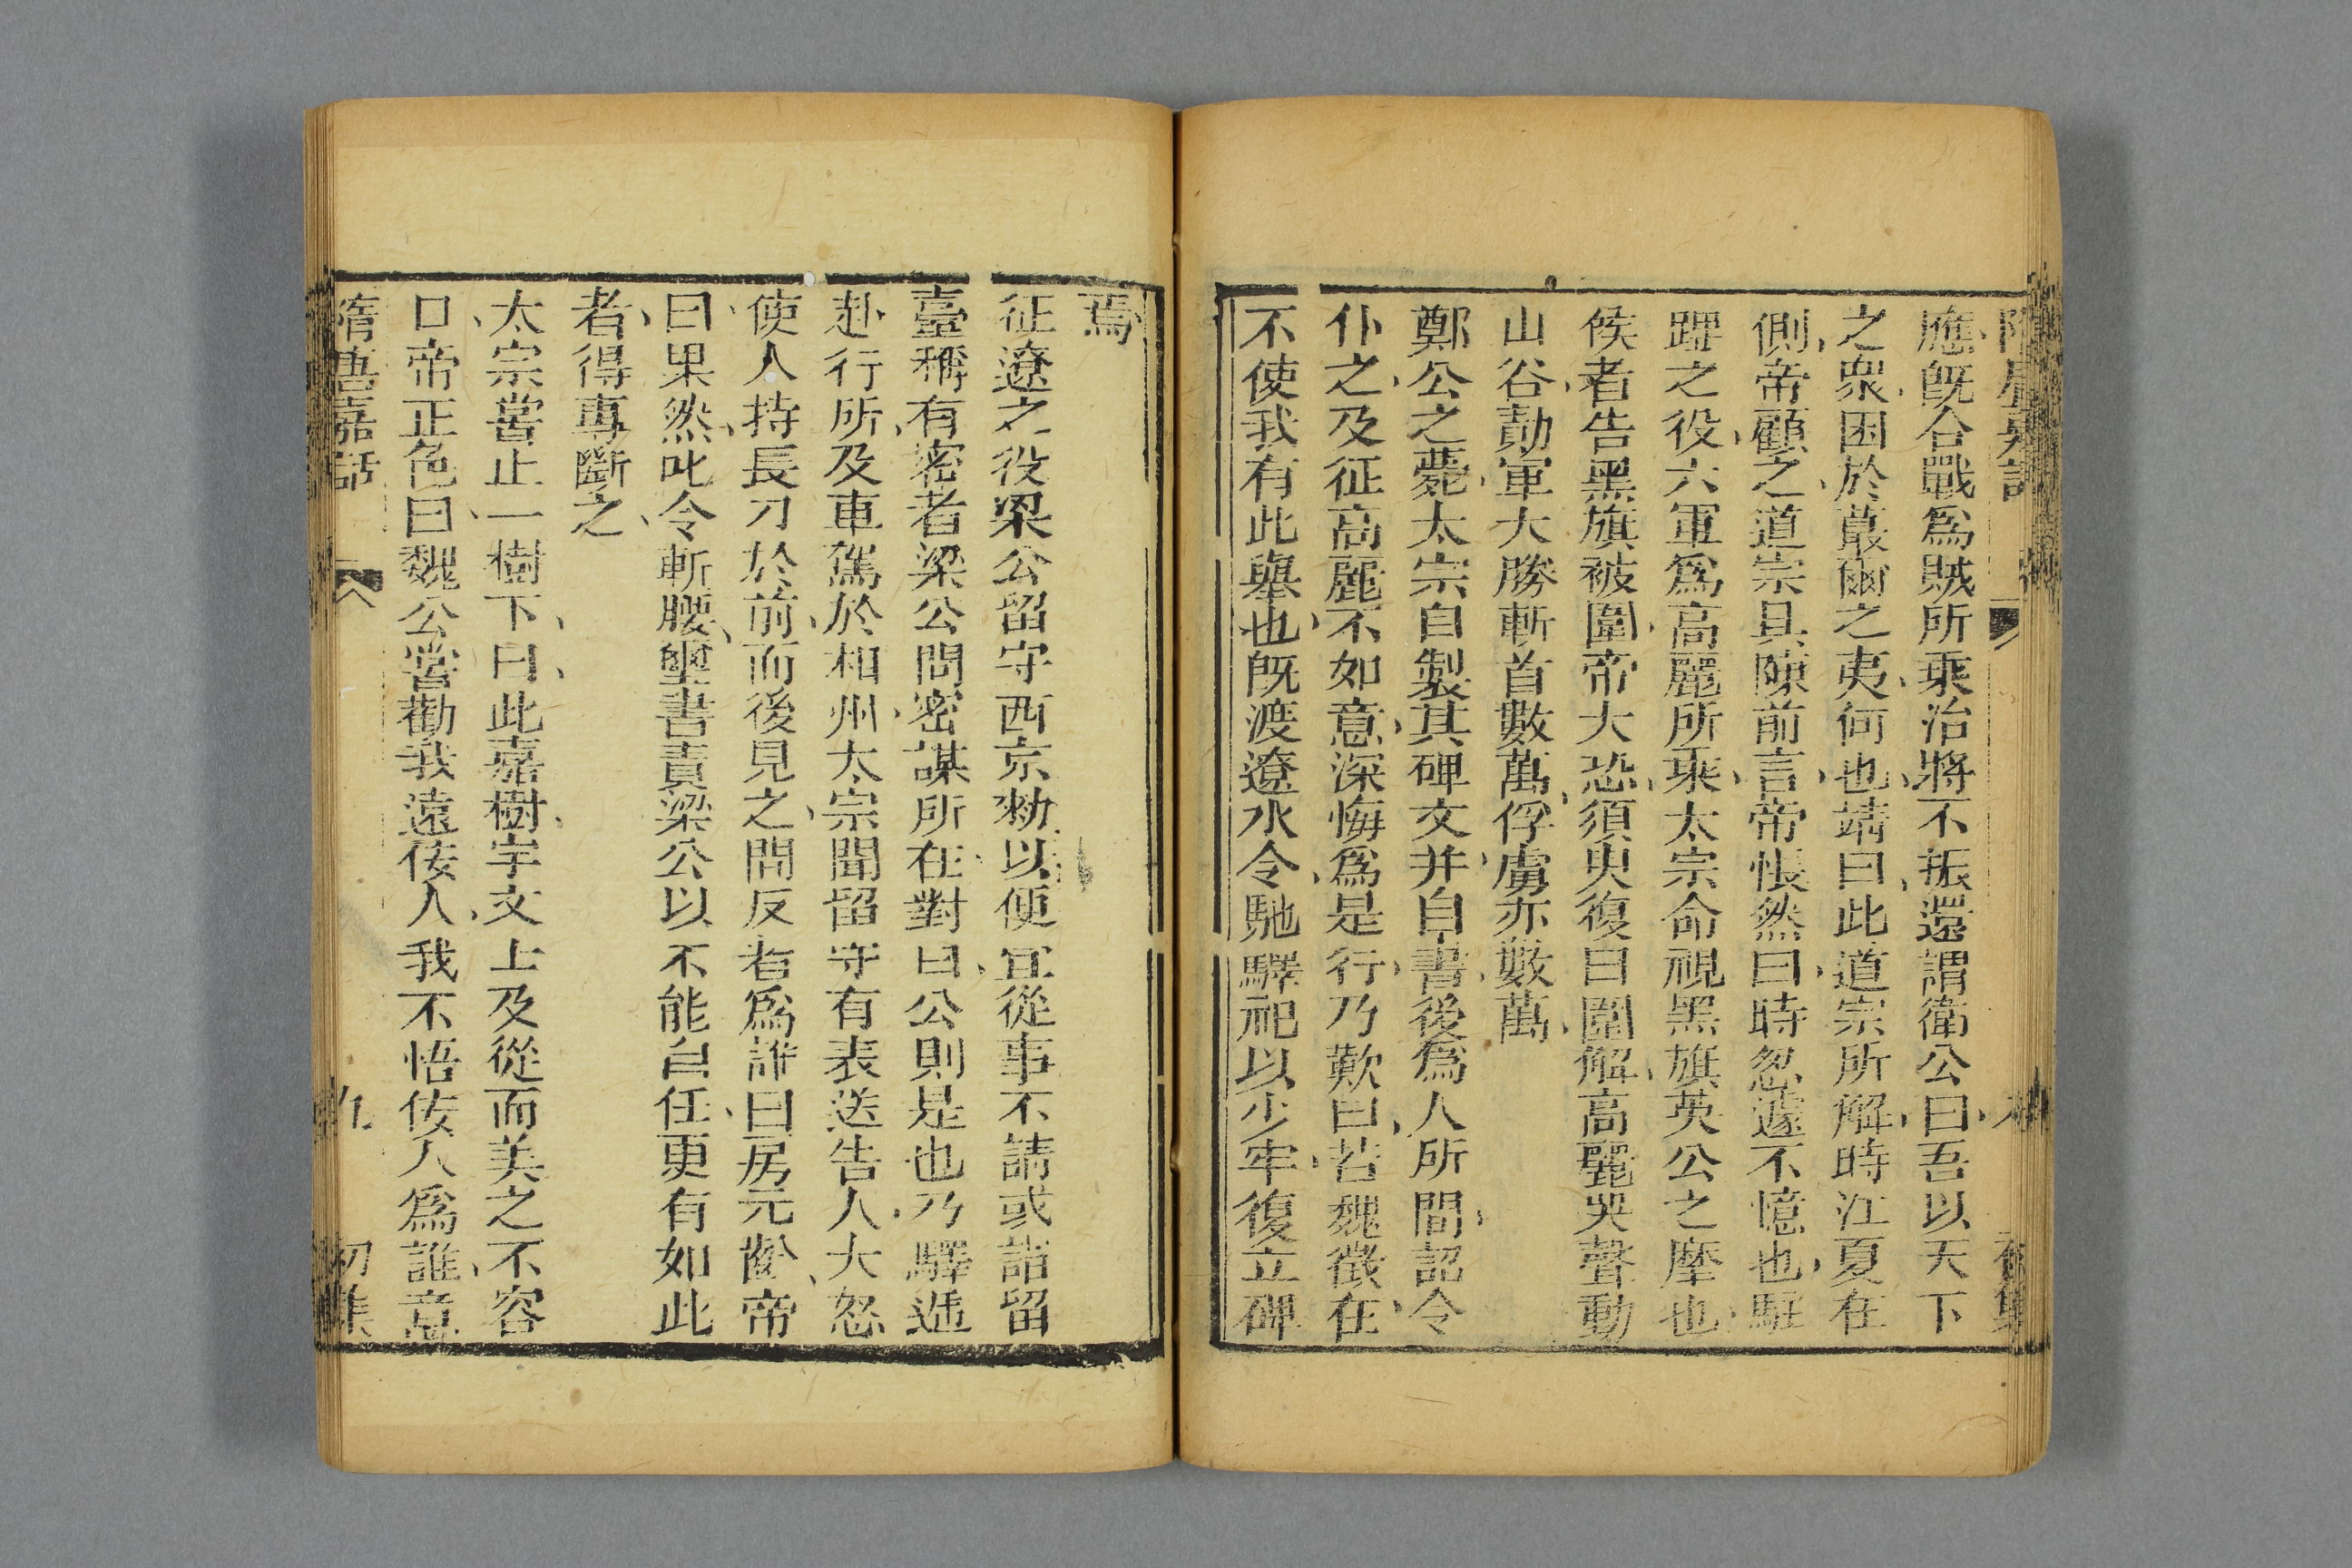 應旣合戰爲賊所乘治將不振還謂衛公曰吾以天下
之衆困於蕞爾之夷何也靖曰此道宗所解時江夏在
側帝顧之道宗具陳前言帝悵然曰時怱遽不憶也駐
蹕之役六軍爲高麗所乘太宗命視黑旗英公之麾也
候者告黑旗被圍帝大恐須臾復曰圍解高麗哭聲動
山谷勣軍大勝斬首數萬俘虜亦數萬
鄭公之薨太宗自製其碑文并自書後爲人所間詔令
仆之及征高麗不如意深悔爲是行乃歎曰若魏徵在
不使我有此舉也旣渡遼水令馳驛祀以少牢復立碑
焉
征遼之役梁公留守西京勑以便宜從事不請或詣留
臺稱有密者梁公問密謀所在對曰公則是也乃驛遞
赴行所及車駕於相州太宗聞留守有表送告人大怒
使人持長刀於前而後見之問反者爲誰曰房元齡帝
曰果然叱令斬腰璽書責梁公以不能自任更有如此
者得專斷之
太宗嘗止一樹下曰此嘉樹宇文士及從而美之不容
口帝正色曰魏公嘗勸我遠佞人我不悟佞人爲誰意
隋唐嘉話 九 初集